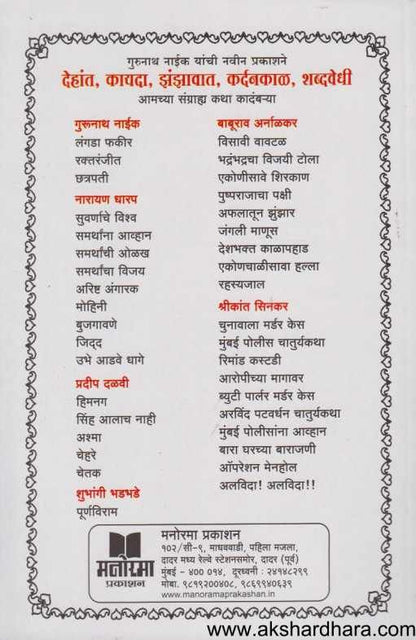 गुरुनाथ नाईक यांची नवीन प्रकाशने
देहांत, कायदा, झंझावात, कर्दनकाळ, शब्दवेधी
आमच्या संग्राह्य कथा कादंबऱ्या
गुरूनाथ नाईक
लंगडा फकीर
रक्तरंजीत
छत्रपती
नारायण धारप
सुवर्णाचे विश्व
समर्थांना आव्हान
समर्थांची ओळख
समर्थांचा विजय
अरिष्ट अंगारक
मोहिनी
बुजगावणे
जिद्द
उभे आडवे धागे
प्रदीप दळवी
हिमनग
सिंह आलाच नाही
अश्मा
चेहरे
चेतक
शुभांगी भडभडे
पूर्णविराम
बाबूराव अर्नाळकर
विसावी बावटळ
भद्रंभद्रचा विजयी टोला
एकोणीसावे शिरकाण
पुष्पराजाचा पक्षी
अफलातून झुंझार
जंगली माणूस
देशभक्त काळापहाड
एकोणचाळीसावा हल्ला
रहस्यजाल
श्रीकांत सिनकर
चुनावाला मर्डर केस
मुंबई पोलीस चातुर्यकथा
रिमांड कस्टडी
आरोपीच्या मागावर
ब्युटी पार्लर मर्डर केस
अरविंद पटवर्धन चातुर्यकथा
मुंबई पोलीसांना आव्हान
बारा घरच्या बाराजणी
ऑपरेशन मेनहोल
अलविदा! अलविदा!!
मनोरमा
प्रकाशन
मनोरमा प्रकाशन
१०२/सी-९, माधववाडी, पहिला मजला,
दादर मध्य रेल्वे स्टेशनसमोर, दादर (पूर्व)
मुंबई - ४०० ०१४, दूरध्वनी : २४१४८२९९
मोबा. ९८१९२००४०८, ९८६९९४०६३९
www.manoramaprakashan.in
www.akshardhara.com